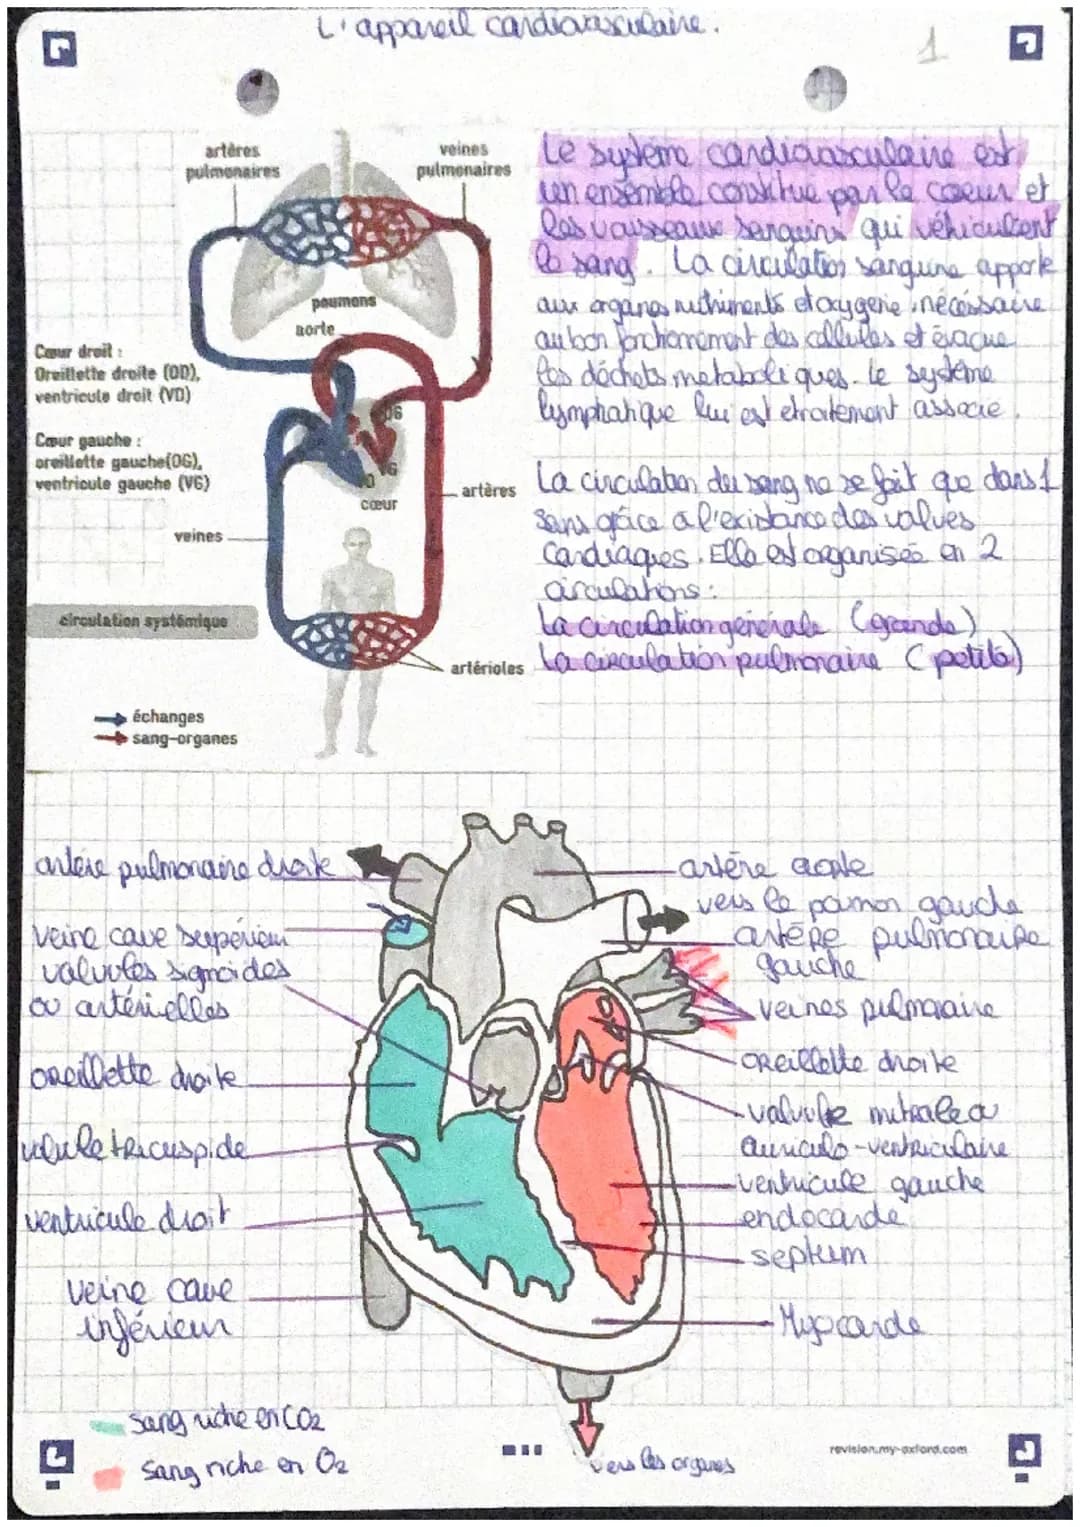 L'appareil cardiovasculaire.
1
artères
pulmonaires
veines
pulmonaires
poumons
aorte
Cœur droit :
Oreillette droite (OD),
ventricule droit (VD)
Cœur gauche :
oreillette gauche(OG),
ventricule gauche (VG)
OG
VG
cœur
artères
veines
circulation systémique
artérioles
échanges
sang-organes
Le système cardiovasculaire est
un ensemble constitue par le coeur et
les vaisseaux sanguins qui véhiculent
le sang. La circulation sanguine apporte
aux organes nutriments et oxygene, nécessaire
au bon fonctionnement des cellules et évacue
les déchets metaboliques. Le système
lymphatique lui est etroitement associe.
La circulation du sang ne se fait que dans 1
sens grâce a l'existance des valves
Cardiaques. Elle est organisée en 2
circulations :
La circulation générale (grande)
La circulation pulmonaire (petite)
artère pulmonaire droite
veine cave superieur
valvules sigmoides
ou artérielles
oreillette droite
valvule tricuspide
ventricule droit
veine cave
inférieur
artère aorte
vers le poumon gauche
artère pulmonaire
gauche
veines pulmonaire
oreillette droite
valvule mitrale ou
auriculo-ventriculaire
ventricule gauche
endocarde
septum
Myocarde
Sang riche en CO2
Sang riche en O2
vers les organes
revision.my-oxford.com